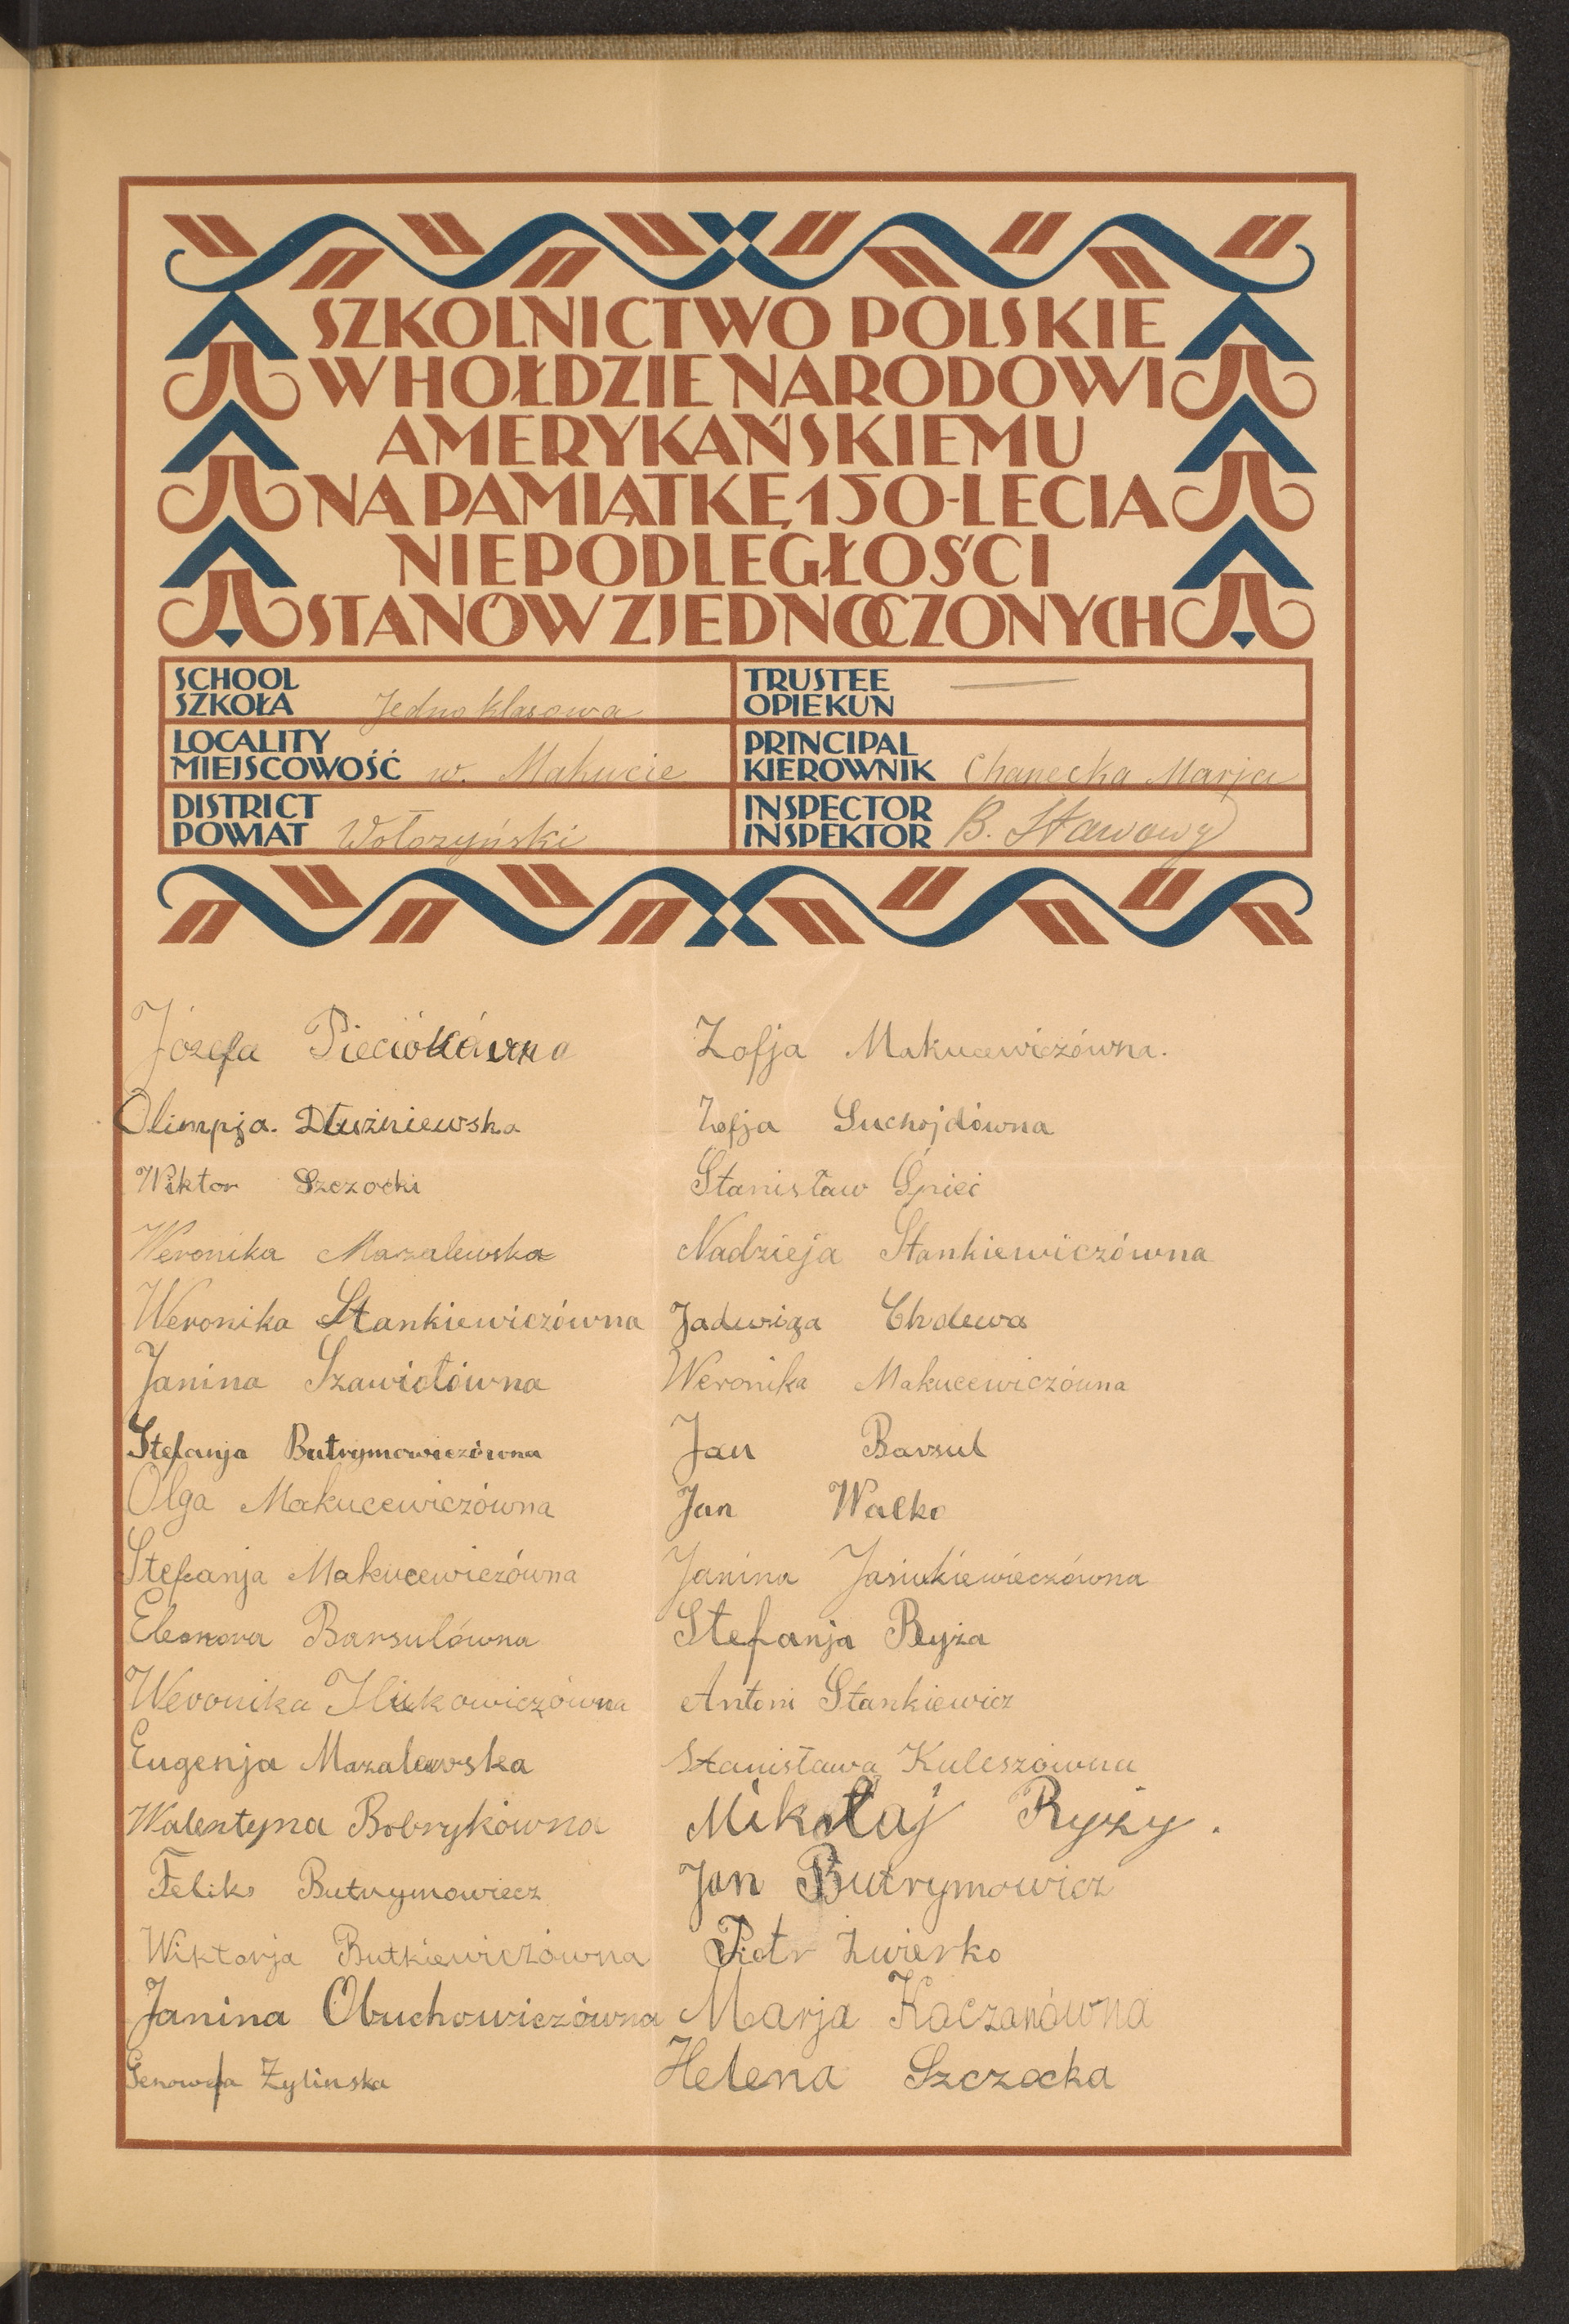 SZKOLNICTWO POLSKIE
W HOŁDZIE NARODOWI
AMERYKAŃSKIEMU
NA PAMIĄTKĘ 150-LECIA
NIEPODLEGŁOŚCI
STANÓW ZJEDNOCZONYCH
SCHOOL
SZKOŁA Jednoklasowa
TRUSTEE
OPIEKUN
LOCALITY
MIEJSCOWOŚĆ w. Makucie
PRINCIPAL
KIEROWNIK Chanecka Marja
DISTRICT
POWIAT Wołożyński
INSPECTOR
INSPEKTOR B. Stawowy
Józefa
Olimpja. Dłużniewska
Wiktor Szczocki
Weronika Mazalewska
Weronika Stankiewiczówna
Janina Szawidłówna
Stefanja Butrymowiczówna
Olga Makucewiczówna
Stefanja Makucewiczówna
Eleonora Barsulówna
Weronika
Eugenja Mazalewska
Walentyna Bobrykówna
Feliks Butrymowiecz
Wiktorja Butkiewiczówna
Janina Obuchowiczówna
Genowefa Zylinska
Zofja Makucewiczówna.
Zofja Suchojdówna
Stanisław
Nadzieja Stankiewiczówna
Jadwiga
Weronika Makucewiczówna
Jan Barsul
Jan Walko
Janina Jasiukiewieczówna
Stefanja Ryża
Antoni Stankiewicz
Stanisława Kuleszówna
Mikołaj Ryży.
Jan Butrymowicz
Piotr Zwierko
Marja Kaczanówna
Helena Szczocka